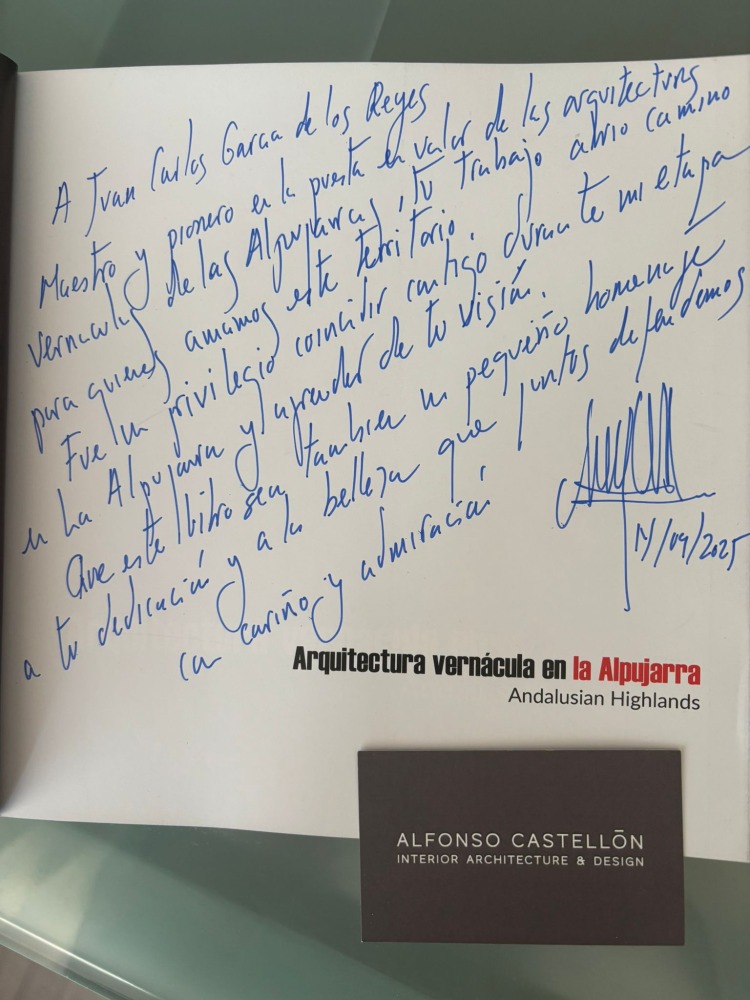 A Juan Carlos Garcia de los Reyes
Maestro y pionero en la puesta en valor de las arquitecturas
vernaculas de las Alpujarras, tu trabajo abrio camino
para quienes amamos este territorio.
Fue un privilegio coincidir contigo durante mi etapa
en La Alpujarra y aprender de tu visión.
Que este libro sea tambien un pequeño homenaje
a tu dedicación y a la belleza que juntos defendemos
con cariño y admiración
/09/2025
Arquitectura vernácula en la Alpujarra
Andalusian Highlands
ALFONSO CASTELLŌN
INTERIOR ARCHITECTURE & DESIGN